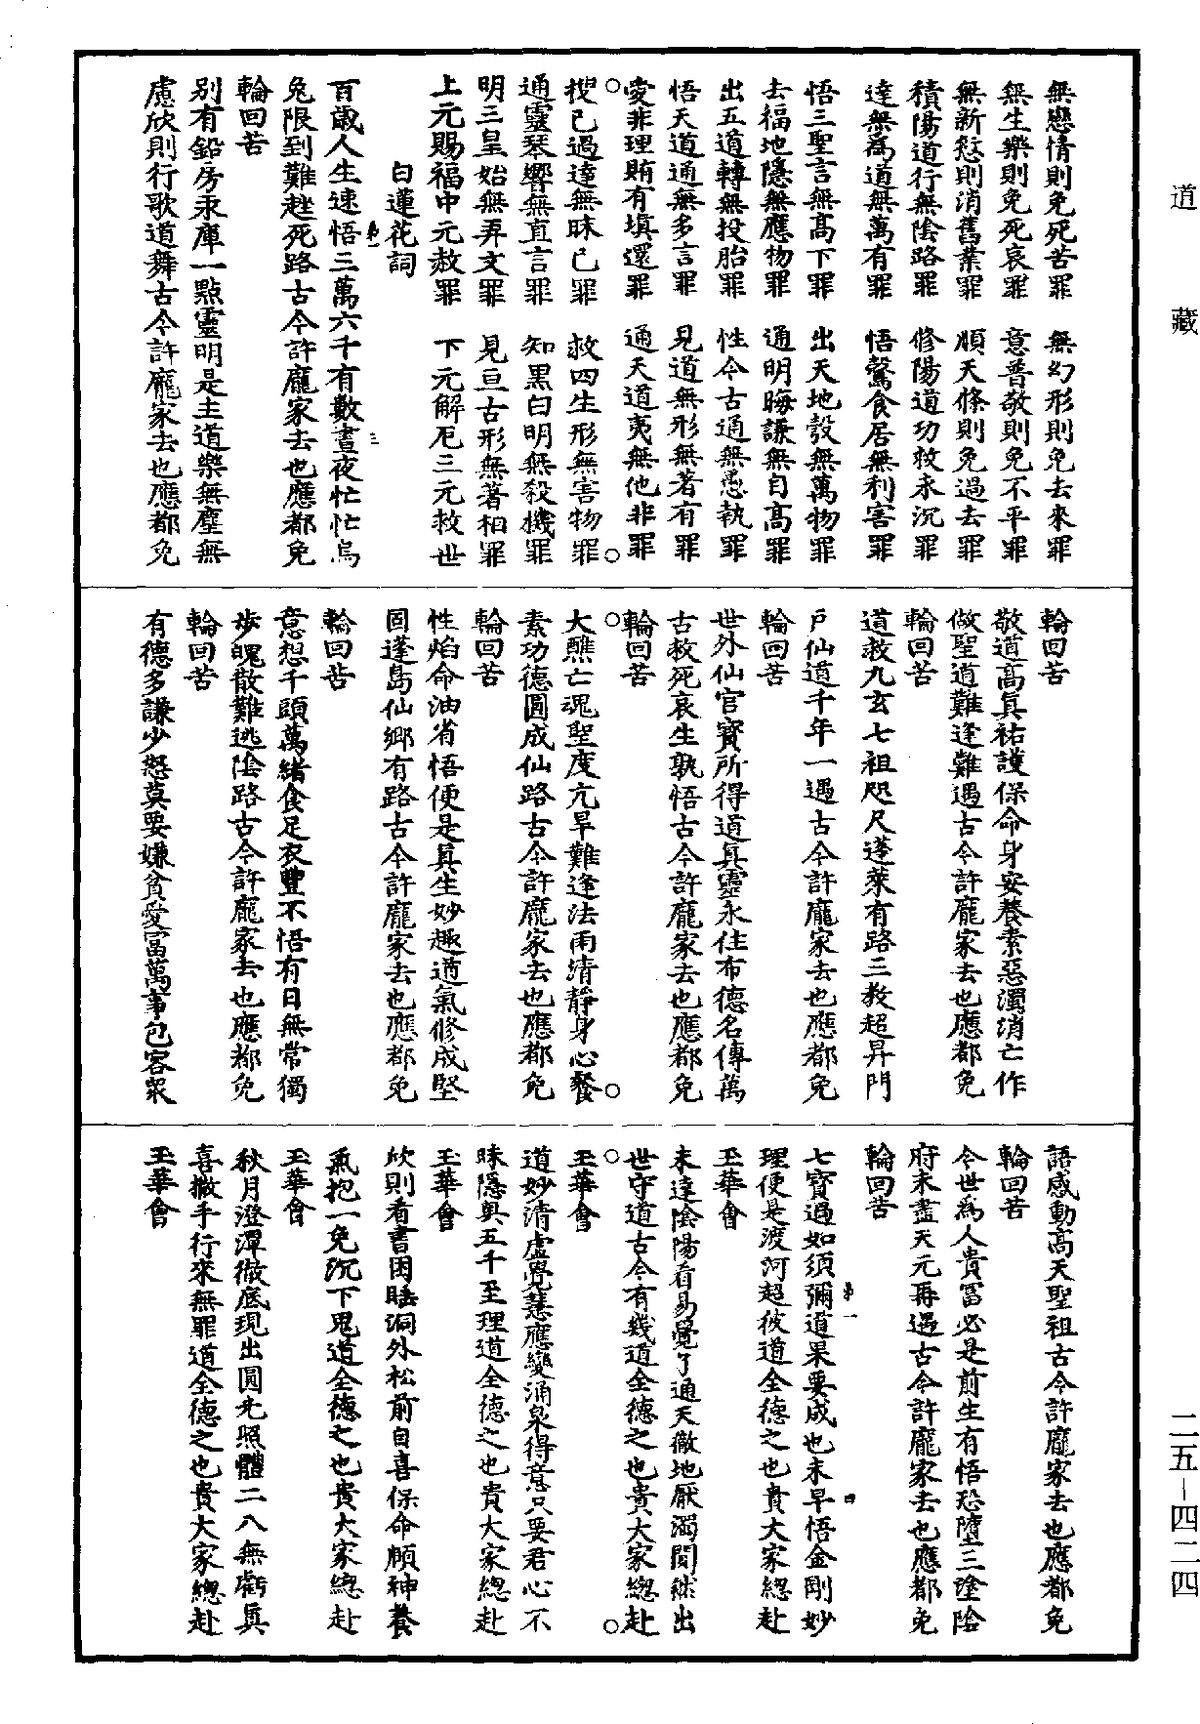 道藏
無戀情則免死苦罪　無幻形則免去來罪
無生樂則免死哀罪　意普敬則免不平罪
無新愆則消舊業罪　順天條則免過去罪
積陽道行無陰路罪　修陽道功救永沉罪
達無爲道無萬有罪　悟鶩食居無利害罪
悟三聖言無高下罪　出天地彀無萬物罪
去福地隱無應物罪　通明晦謙無自高罪
出五道轉無投胎罪　性今古通無愚執罪
悟天道通無多言罪　見道無形無著有罪
愛非理賄有填還罪　通天道夷無他非罪
搜己過達無昧己罪　救四生形無害物罪
通靈琴響無直言罪　知黑白明無殺機罪
明三皇始無弄文罪　見亘古形無著相罪
上元賜福中元赦罪　下元解厄三元救世
白蓮花詞
百歲人生速悟三萬六千有數晝夜忙忙烏
兔限到難趓死路古今許龐家去也應都免
輪回苦
別有鉛房汞庫一點靈明是主道樂無塵無
慮欣則行歌道舞古今許龐家去也應都免
輪回苦
敬道高真祐護保命身安養素惡濁消亡作
做聖道難逢難遇古今許龐家去也應都免
輪回苦
道救九玄七祖咫尺蓬萊有路三教超昇門
戶仙道千年一遇古今許龐家去也應都免
輪回苦
世外仙官寶所得道真靈永住布德名傳萬
古救死哀生孰悟古今許龐家去也應都免
輪回苦
大醮亡魂聖度亢旱難逢法雨清靜身心餐
素功德圓成仙路古今許龐家去也應都免
輪回苦
性焰命油省悟便是真生妙趣道氣修成堅
固蓬島仙鄉有路古今許龐家去也應都免
輪回苦
意想千頭萬緒食足衣豐不悟有日無常獨
步魄散難逃陰路古今許龐家去也應都免
輪回苦
有德多謙少怒莫要嫌貧愛富萬事包容衆
語感動高天聖祖古今許龐家去也應都免
輪回苦
今世爲人貴富必是前生有悟恐墮三塗陰
府未盡天元再遇古今許龐家去也應都免
輪回苦
七寶過如須彌道果要成也未早悟金剛妙
理便是渡河超彼道全德之也貴大家總赴
玉華會
未達陰陽看易覺了通天徹地厭濁閴然出
世守道古今有幾道全德之也貴大家總赴
玉華會
道妙清虛覺慧應變涌泉得意只要君心不
昧隱奧五千至理道全德之也貴大家總赴
玉華會
欣則看書困睡洞外松前自喜保命頤神養
氣抱一免沉下鬼道全德之也貴大家總赴
玉華會
秋月澄潭徹底現出圓光照體二八無虧真
喜撒手行來無罪道全德之也貴大家總赴
玉華會
二五－四二四